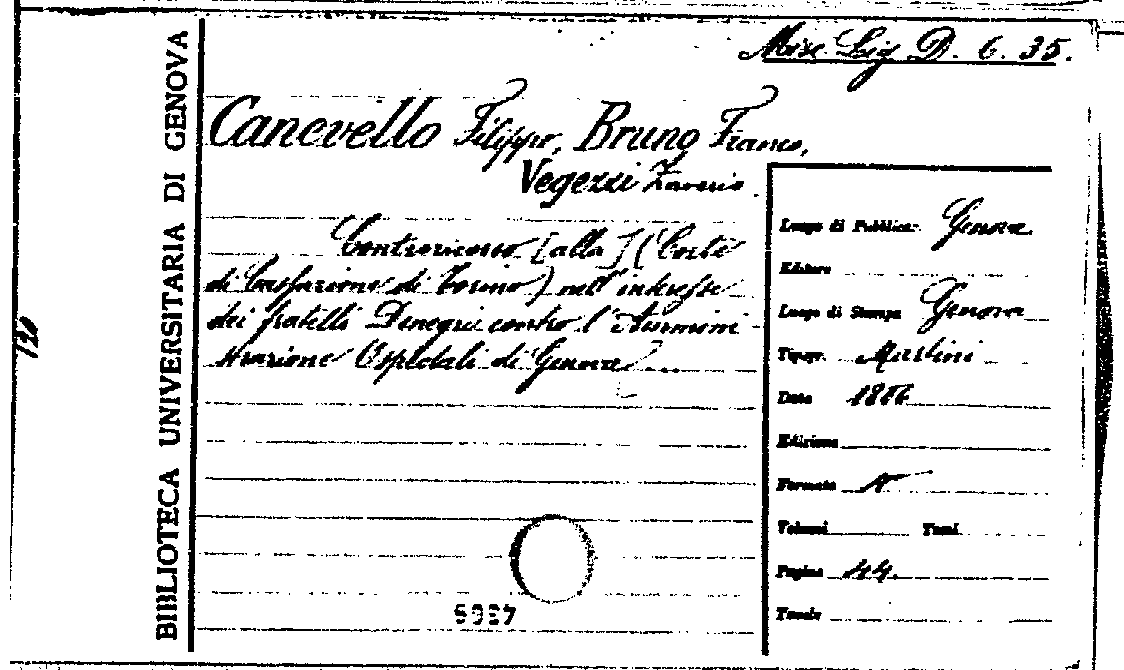 Misc. Lig. D. 6. 35.
Canevello Filippo, Bruno Franco,
Vegezzi Zaverio.
Controricorso [alla] (Corte
di Cassazione di Torino) nell'interesse
dei fratelli Denegri contro l'Ammini
strazione Ospedali di Genova ...
BIBLIOTECA UNIVERSITARIA DI GENOVA
Luogo di Pubblicaz. Genova
Editore
Luogo di Stampa Genova
Tipogr. Martini
Data 1886
Edizione
Formato
Volumi Tomi
Pagine 44.
Tavole